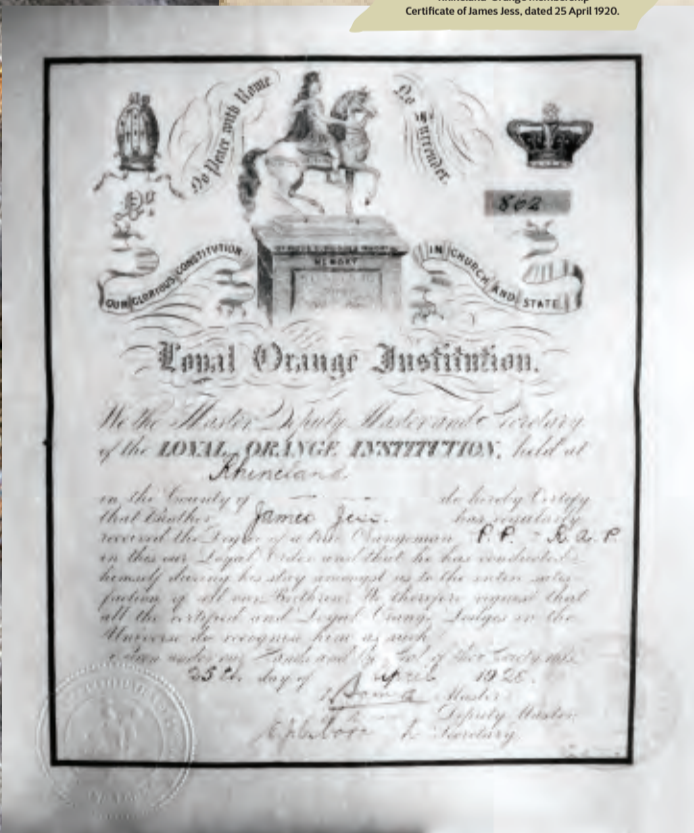 Certificate of James Jess, dated 25 April 1920.
No Peace with Rome
No Surrender.
862
OUR GLORIOUS CONSTITUTION
IN CHURCH AND STATE
MEMORY
Loyal Orange Institution.
We the Master Deputy Master and Secretary
of the LOYAL ORANGE INSTITUTION, held at
Rhineland
in the County of do hereby Certify
that Brother James Jess. has regularly
received the Degree of a true Orangeman P.P. - R.A.P
in this our Loyal Order and that he has conducted
himself during his stay amongst us to the entire satis
faction of all our Brethren. We therefore request that
all the certified and Loyal Orange Lodges in the
Universe do recognise him as such
Given under our Hands and the Seal of this Lodge this
25th day of April 1920.
Master
Deputy Master
Secretary